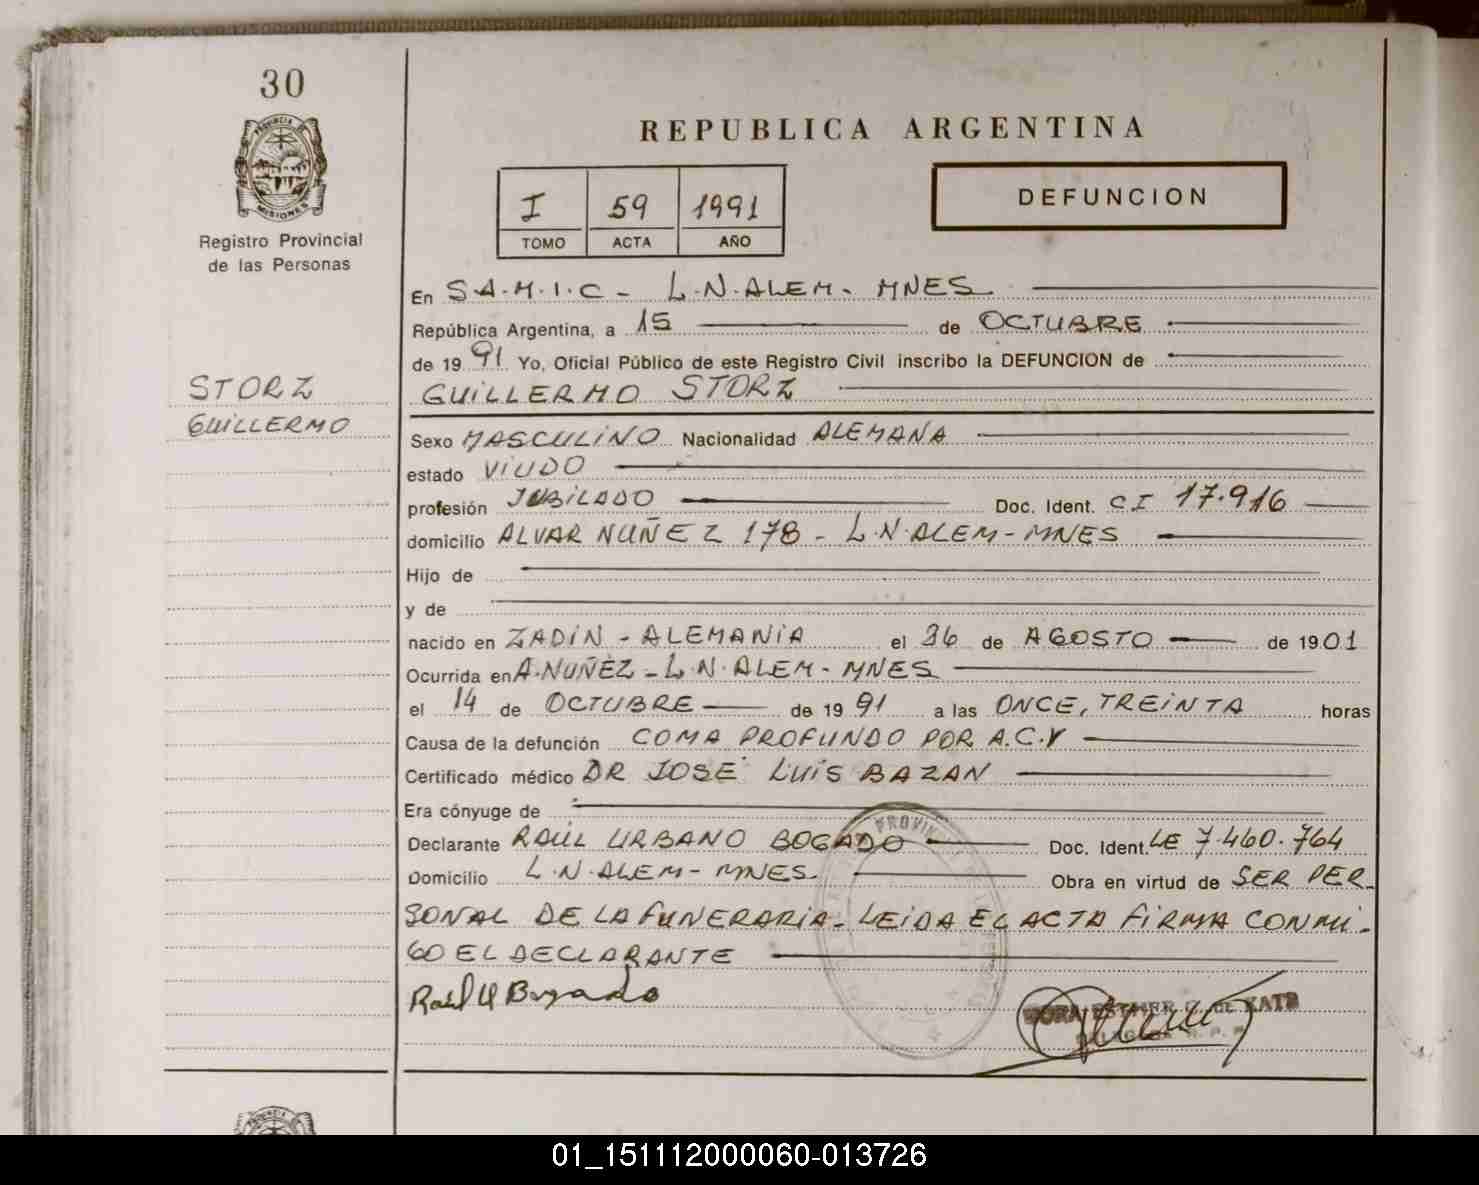 30
PROVINCIA DE
MISIONES
Registro Provincial
de las Personas
STORZ
GUILLERMO
REPUBLICA ARGENTINA
I 59 1991
TOMO ACTA AÑO
DEFUNCION
En S.A.M.I.C - L.N.ALEM - MNES
República Argentina, a 15 de OCTUBRE
de 19 91 Yo, Oficial Público de este Registro Civil inscribo la DEFUNCION de
GUILLERMO STORZ
Sexo MASCULINO Nacionalidad ALEMANA
estado VIUDO
profesión JUBILADO Doc. Ident. CI 17.916
domicilio ALVAR NUÑEZ 178 - L.N.ALEM - MNES
Hijo de
y de
nacido en ZADIN - ALEMANIA el 36 de AGOSTO de 1901
Ocurrida en A.NUÑEZ - L.N.ALEM - MNES
el 14 de OCTUBRE de 19 91 a las ONCE, TREINTA horas
Causa de la defunción COMA PROFUNDO POR A.C.V
Certificado médico DR JOSÉ LUIS BAZAN
Era cónyuge de
Declarante RAÚL URBANO BOGADO Doc. Ident. LE 7.460.764
Domicilio L.N.ALEM - MNES. Obra en virtud de SER PER-
SONAL DE LA FUNERARIA - LEIDA EL ACTA FIRMA CONMI-
GO EL DECLARANTE
Raúl U Bogado
ESTHER de KATZ
PROVIN
01_151112000060-013726